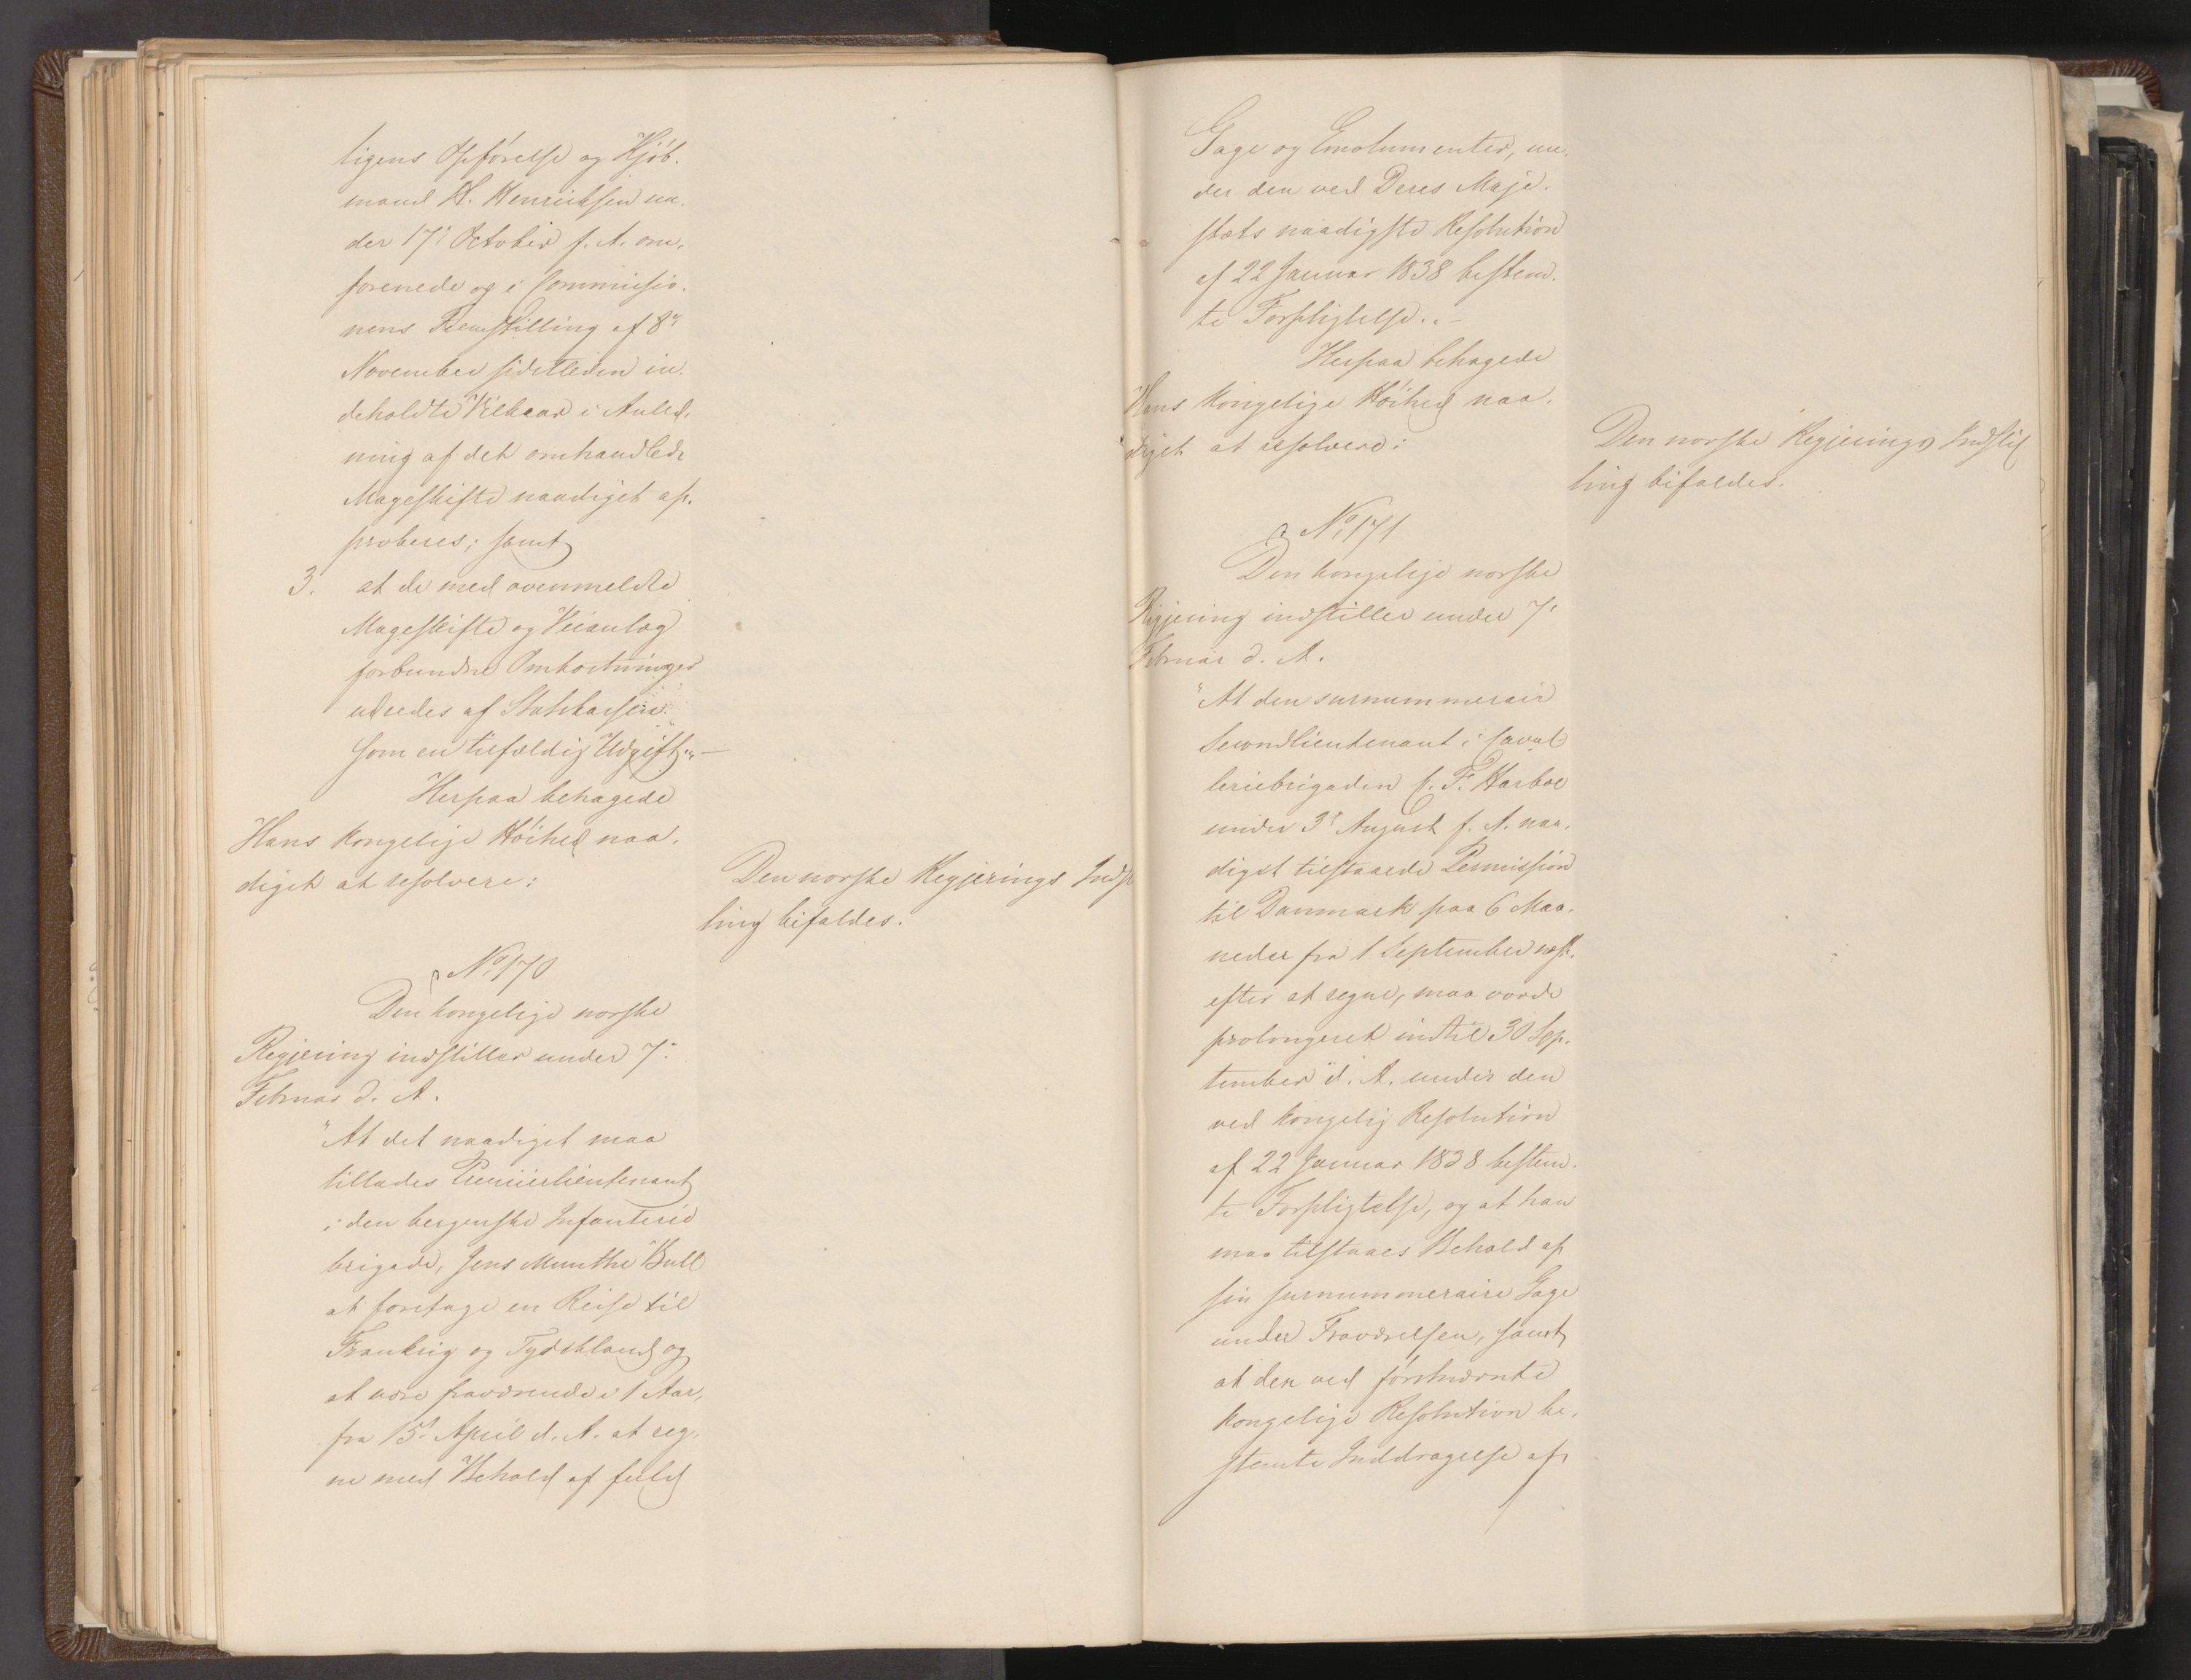 ligens Opførelse og Kjøb-
mand H. Henriksen un-
der 17de October f. A. om-
forenede og i Commissio-
nens Fremstilling af 8de
November sidstleden in-
deholdte Vilkaar i Anled-
ning af det omhandlede
Mageskifte naadigst ap-
proberes; samt
3. at de med ovenmeldte
Mageskifte og Veianlæg
forbundne Omkostninger
udredes af Statskassen
som en tilfældig Udgift."—
Herpaa behagede
Hans Kongelige Höihed naa-
digst at resolvere:
Den norske Regjerings Indst
ling bifaldes.
No 170
Den kongelige norske
Regjering indstiller under 7de
Februar d. A.
"At det naadigst maa
tillades Premierlieutenant
i den bergenske Infanterie
brigade, Jens Munthe Bull
at foretage en Reise til
Frankrig og Tydskland og
at være fraværende i 1 Aar,
fra 15de April d. A. at reg-
ne med Behold af fuld
Gage og Emolumenter, un-
der den ved Deres Maje-
stæts naadigste Resolution
af 22 Januar 1838 bestem-
te Forpligtelse."—
Herpaa behagede
Hans Kongelige Höihed naa-
digst at resolvere:
Den norske Regjerings Indstil
ling bifaldes.
No 171
Den kongelige norske
Regjering indstiller under 7de
Februar d. A.
"At den surnummerair
Secondlieutenant i Caval
leriebrigaden C. F. Harboe
under 3de August f. A. naa-
digst tilstaaede Permission
til Danmark paa 6 Maa-
neder fra 1 September næst-
efter at regne, maa vorde
prolongeret indtil 30 Sep-
tember d. A. under den
ved kongelig Resolution
af 22 Januar 1838 bestem-
te Forpligtelse, og at han
maa tilstaaes Behold af
sin surnummeraire Gage
under Fraværelsen, samt
at den ved førstnævnte
kongelige Resolution be-
stemte Inddragelse af